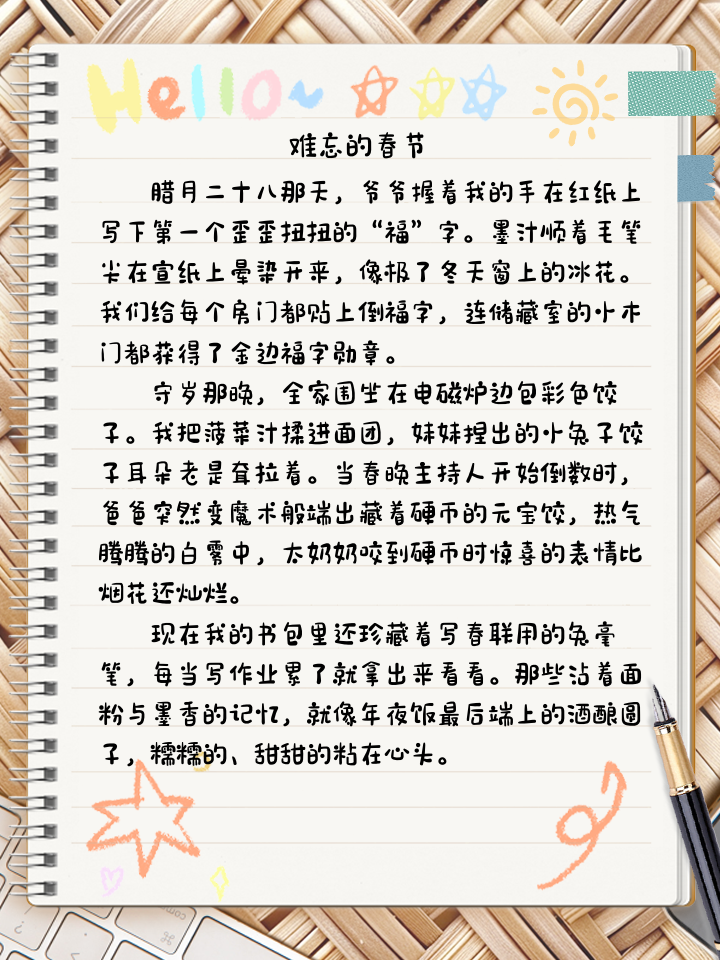 Hello~
难忘的春节
腊月二十八那天，爷爷握着我的手在红纸上
写下第一个歪歪扭扭的“福”字。墨汁顺着毛笔
尖在宣纸上晕染开来，像极了冬天窗上的冰花。
我们给每个房门都贴上倒福字，连储藏室的小木
门都获得了金边福字勋章。
守岁那晚，全家围坐在电磁炉边包彩色饺
子。我把菠菜汁揉进面团，妹妹捏出的小兔子饺
子耳朵老是耷拉着。当春晚主持人开始倒数时，
爸爸突然变魔术般端出藏着硬币的元宝饺，热气
腾腾的白雾中，太奶奶咬到硬币时惊喜的表情比
烟花还灿烂。
现在我的书包里还珍藏着写春联用的兔毫
笔，每当写作业累了就拿出来看看。那些沾着面
粉与墨香的记忆，就像年夜饭最后端上的酒酿圆
子，糯糯的、甜甜的粘在心头。